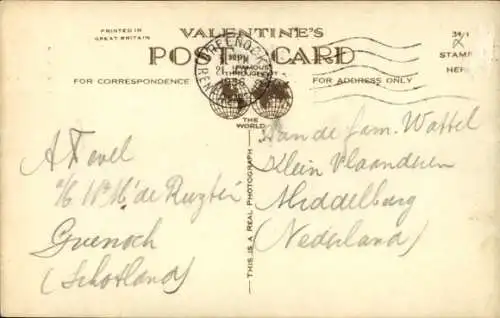 PRINTED IN
GREAT BRITAIN
VALENTINE'S
POST CARD
STAMP
HERE
FOR CORRESPONDENCE
FOR ADDRESS ONLY
GREENOCK
FAMOUS
THROUGHOUT
THE
WORLD
THIS IS A REAL PHOTOGRAPH
A Tevel
a/b Hr Ms de Ruyter
Greenoch
(Schotland)
Aan de fam. Wattel
Klein Vlaanderen
Middelburg
(Nederland)